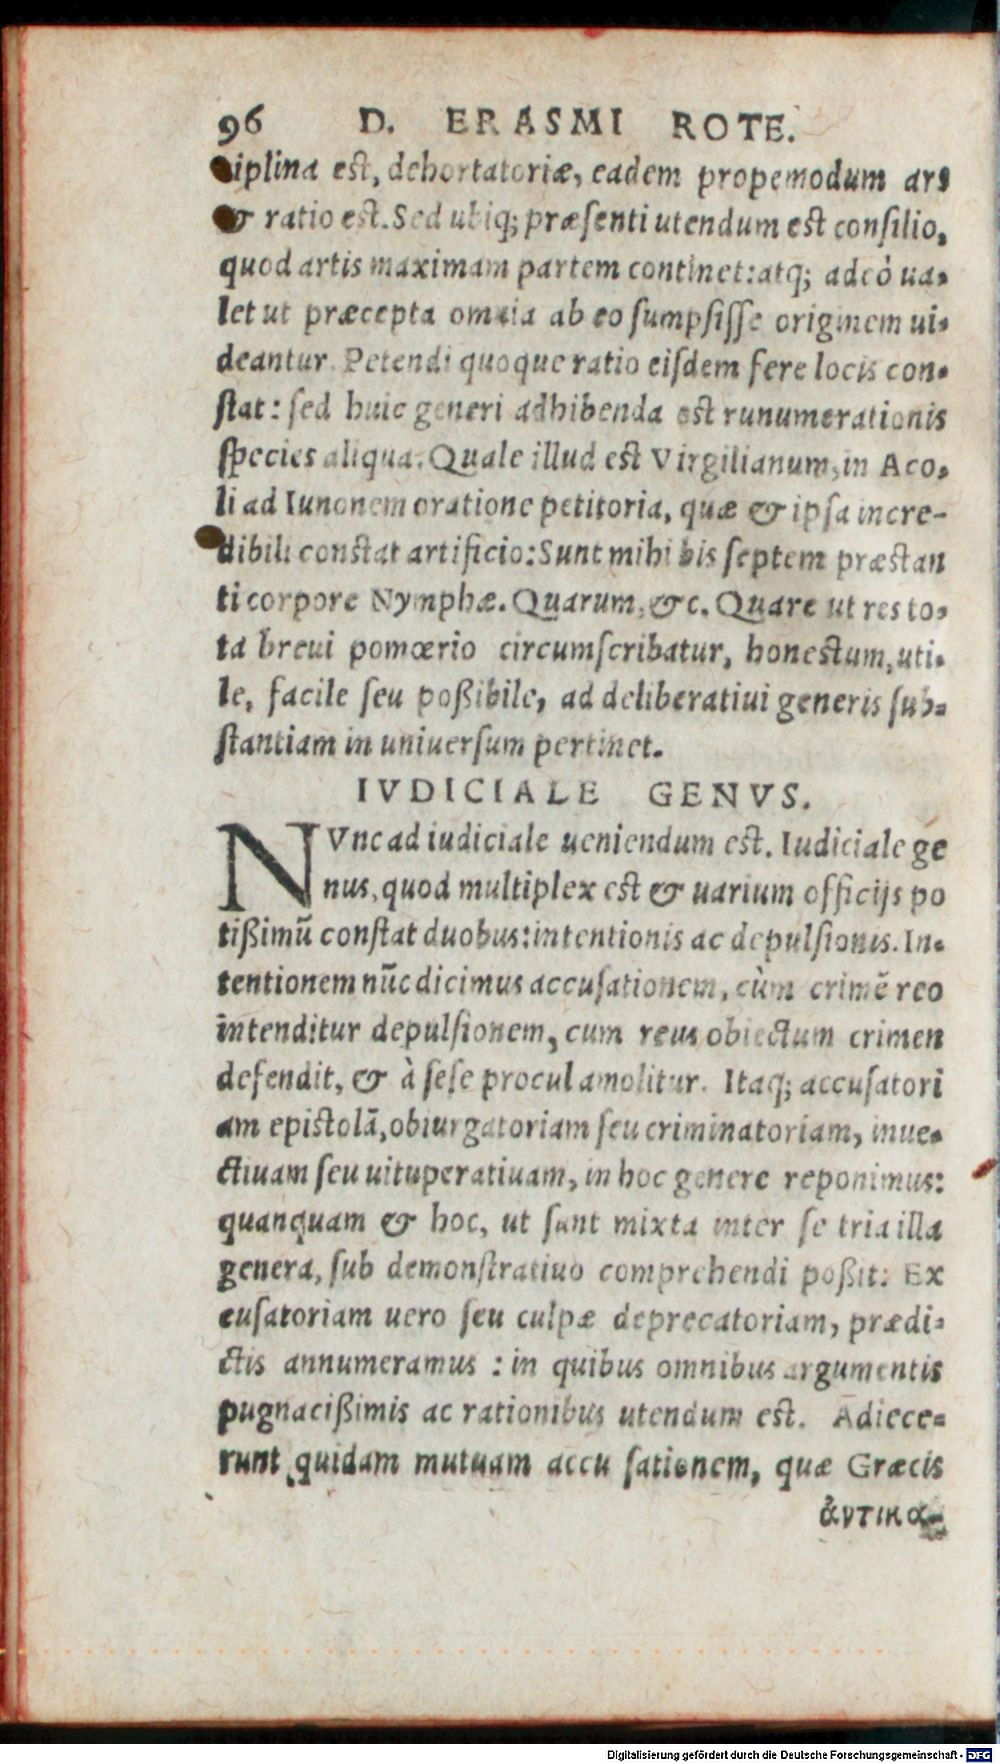 96 D. ERASMI ROTE.
iplina est, dehortatoriæ, eadem propemodum ars
& ratio est. Sed ubiq; præsenti utendum est consilio,
quod artis maximam partem continet: atq; adeò ua-
let ut præcepta omnia ab eo sumpsisse originem ui-
deantur. Petendi quoque ratio eisdem fere locis con-
stat: sed huic generi adhibenda est runumerationis
species aliqua. Quale illud est Virgilianum, in Aco-
li ad Iunonem oratione petitoria, quæ & ipsa incre-
dibili constat artificio: Sunt mihi bis septem præstan
ti corpore Nymphæ. Quarum, &c. Quare ut res to-
ta breui pomœrio circumscribatur, honestum, uti-
le, facile seu poßibile, ad deliberatiui generis sub-
stantiam in uniuersum pertinet.
IVDICIALE GENVS.
NVnc ad iudiciale ueniendum est. Iudiciale ge
nus, quod multiplex est & uarium officijs po
tißimū constat duobus: intentionis ac depulsionis. In-
tentionem nūc dicimus accusationem, cùm crimē reo
intenditur depulsionem, cum reus obiectum crimen
defendit, & à sese procul amolitur. Itaq; accusatori
am epistolā, obiurgatoriam seu criminatoriam, inue-
ctiuam seu uituperatiuam, in hoc genere reponimus:
quanquam & hoc, ut sunt mixta inter se tria illa
genera, sub demonstratiuo comprehendi poßit: Ex
cusatoriam uero seu culpæ deprecatoriam, prædi-
ctis annumeramus : in quibus omnibus argumentis
pugnacißimis ac rationibus utendum est. Adiece-
runt quidam mutuam accu sationem, quæ Græcis
ἀντικα-
Digitalisierung gefördert durch die Deutsche Forschungsgemeinschaft - DFG